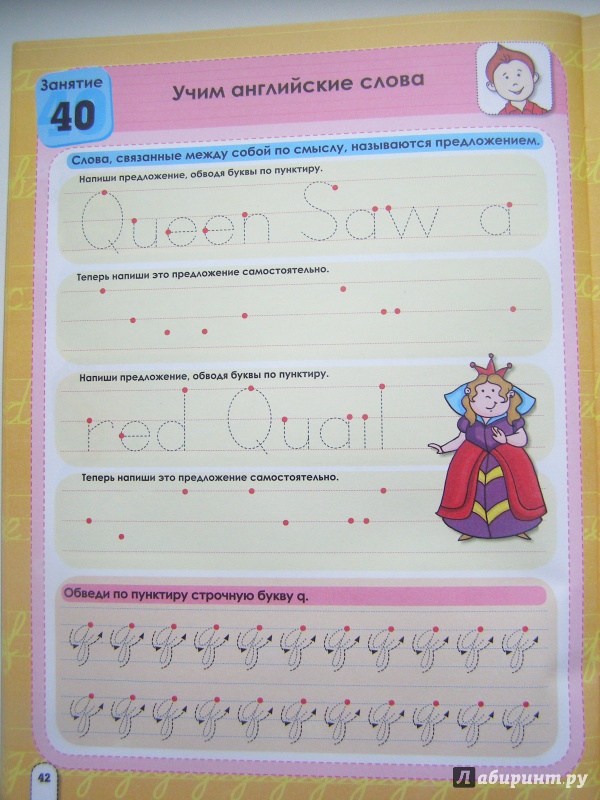 Занятие
40
Учим английские слова
Слова, связанные между собой по смыслу, называются предложением.
Напиши предложение, обводя буквы по пунктиру.
Queen Saw a
Теперь напиши это предложение самостоятельно.
Напиши предложение, обводя буквы по пунктиру.
red Quail
Теперь напиши это предложение самостоятельно.
Обведи по пунктиру строчную букву q.
q q q q q q q q q q q
q q q q q q q q q q q
42
Лабиринт.ру